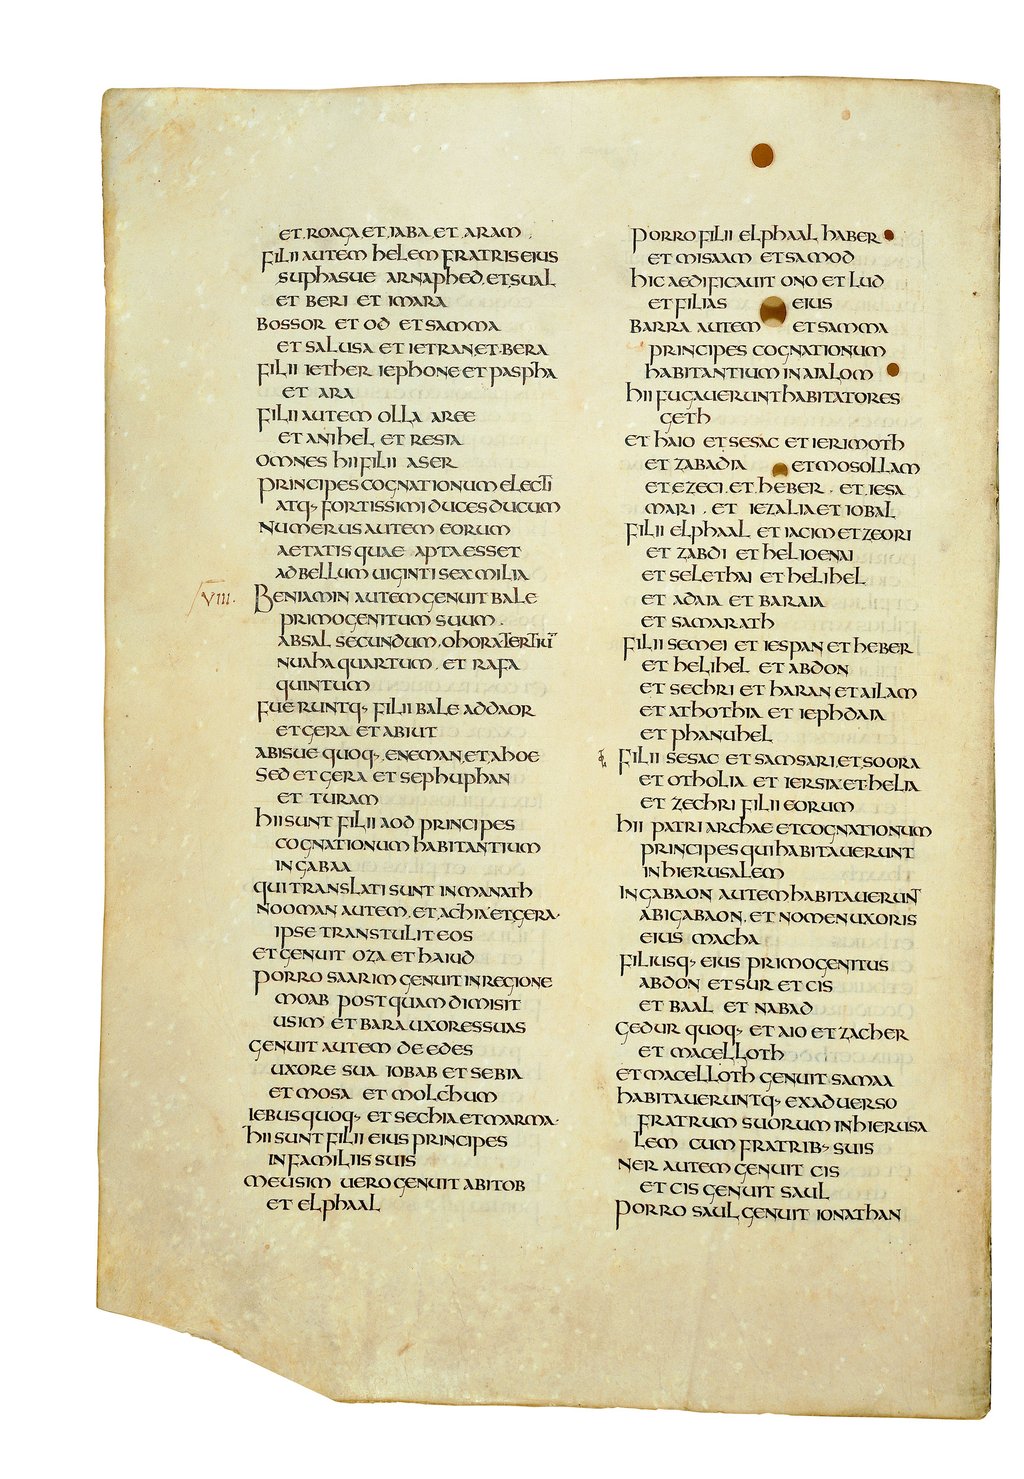 ET ROAGA ET IABA ET ARAM
FILII AUTEM HELEM FRATRIS EIUS
SUPHASUE ARNAPHED ET SUAL
ET BERI ET IMARA
BOSSOR ET OD ET SAMMA
ET SALUSA ET IETRAN ET BERA
FILII IETHER IEPHONE ET PASPHA
ET ARA
FILII AUTEM OLLA AREE
ET ANIHEL ET RESIA
OMNES HII FILII ASER
PRINCIPES COGNATIONUM ELECTI
ATQ; FORTISSIMI DUCES DUCUM
NUMERUS AUTEM EORUM
AETATIS QUAE APTA ESSET
AD BELLUM UIGINTI SEX MILIA
VIII. BENIAMIN AUTEM GENUIT BALE
PRIMOGENITUM SUUM.
ABSAL SECUNDUM. OHORA TERTIŪ
NUAHA QUARTUM. ET RAFA
QUINTUM
FUERUNTQ; FILII BALE ADDAOR
ET GERA ET ABIUT
ABISUE QUOQ; ENEMAN ET AHOE
SED ET GERA ET SEPHUPHAN
ET TURAM
HII SUNT FILII AOD PRINCIPES
COGNATIONUM HABITANTIUM
IN GABAA
QUI TRANSLATI SUNT IN MANATH
NOOMAN AUTEM. ET ACHIA ET GERA.
IPSE TRANSTULIT EOS
ET GENUIT OZA ET HAIUD
PORRO SAARIM GENUIT IN REGIONE
MOAB POSTQUAM DIMISIT
USIM ET BARA UXORES SUAS
GENUIT AUTEM DE EDES
UXORE SUA IOBAB ET SEBIA
ET MOSA ET MOLCHUM
IEBUS QUOQ; ET SECHIA ET MARMA.
HII SUNT FILII EIUS PRINCIPES
IN FAMILIIS SUIS
MEUSIM UERO GENUIT ABITOB
ET ELPHAAL
PORRO FILII ELPHAAL HABER
ET MISAAM ET SAMOD
HIC AEDIFICAUIT ONO ET LUD
ET FILIAS EIUS
BARRA AUTEM ET SAMMA
PRINCIPES COGNATIONUM
HABITANTIUM IN AIALOM
HII FUGAUERUNT HABITATORES
GETH
ET HAIO ET SESAC ET IERIMOTH
ET ZABADIA ET MOSOLLAM
ET EZECI. ET HEBER. ET IESA
MARI. ET IEZALIA ET IOBAL
FILII ELPHAAL ET IACIM ET ZEORI
ET ZABDI ET HELIOENAI
ET SELETHAI ET HELIHEL
ET ADAIA ET BARAIA
ET SAMARATH
FILII SEMEI ET IESPAN ET HEBER
ET HELIHEL ET ABDON
ET SECHRI ET HARAN ET AILAM
ET ATHOTHIA ET IEPHDAIA
ET PHANUHEL
FILII SESAC ET SAMSARI. ET SOORA
ET OTHOLIA ET IERSIA ET HELIA
ET ZECHRI FILII EORUM
HII PATRIARCHAE ET COGNATIONUM
PRINCIPES QUI HABITAUERUNT
IN HIERUSALEM
IN GABAON AUTEM HABITAUERUNT
ABIGABAON. ET NOMEN UXORIS
EIUS MACHA
FILIUSQ; EIUS PRIMOGENITUS
ABDON ET SUR ET CIS
ET BAAL ET NABAD
GEDUR QUOQ; ET AIO ET ZACHER
ET MACELLOTH
ET MACELLOTH GENUIT SAMAA
HABITAUERUNTQ; EX ADUERSO
FRATRUM SUORUM IN HIERUSA
LEM CUM FRATRIB; SUIS
NER AUTEM GENUIT CIS
ET CIS GENUIT SAUL
PORRO SAUL GENUIT IONATHAN